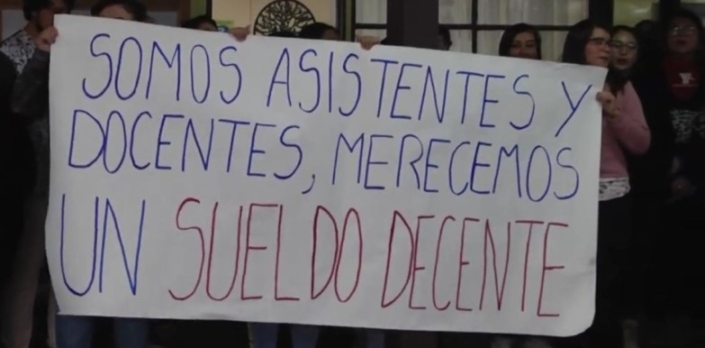 SOMOS ASISTENTES Y
DOCENTES, MERECEMOS
UN SUELDO DECENTE